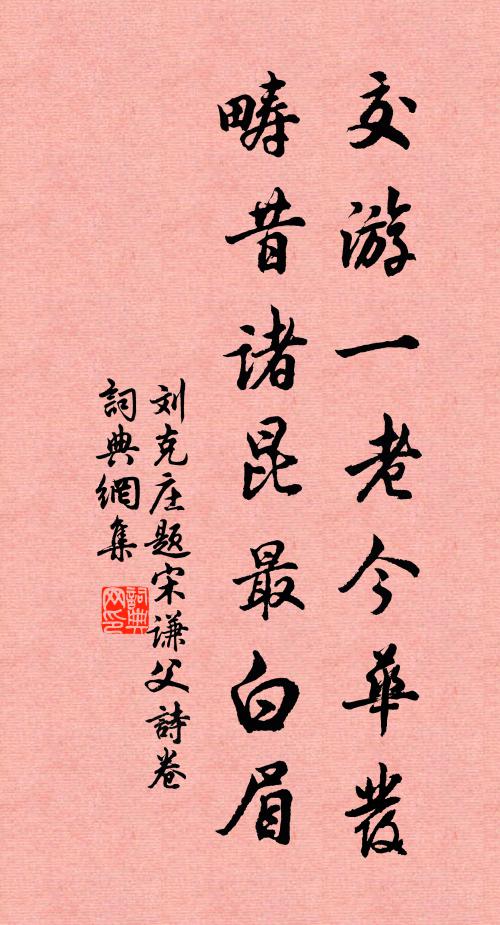 交游一老今華发
畴昔诸昆最白眉
刘克庄题宋谦父詩卷
詞典網集
詞典网印